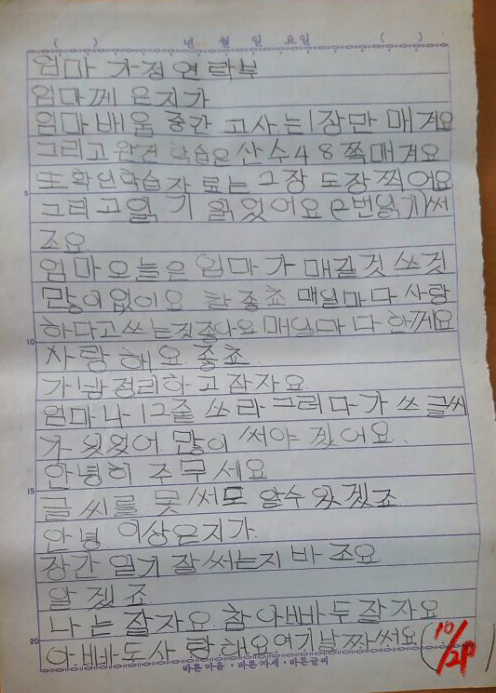 ( ) 년 월 일 요일 ( )
엄마 가정연락부
엄마께 은지가
엄마 배움 중간 고사는 1장만 매겨요
그리고 완전 학습은 산수 48쪽 매겨요
또 확인학습자 료는 그장 도장 찍어요
5
그리고 읽기 읽었어요 (2번읽기)써
조요
엄마 오늘은 엄마가 매길것 쓰것
많이 없이요 참 좋죠 매일마다 사랑
하다고 쓰는것 좋나요 매일마다 한께요
10
사랑해요 좋죠.
가방 정리하고 잠자요
엄마 나 12줄 쓰라 그래 마가 쓰 글씨
가 있었어 많이 써야 겠어요.
안녕히 주무세요
15
글씨를 못써도 알수 있겠죠
안녕 이상은지가.
장간 일기 잘써는지 바 조요
알겠죠
나는 잘자요 참 아빠 두 잘자요
20
아빠도 사랑해요 여기 날짜써요 (10/29)
바른마음·바른자세·바른글씨